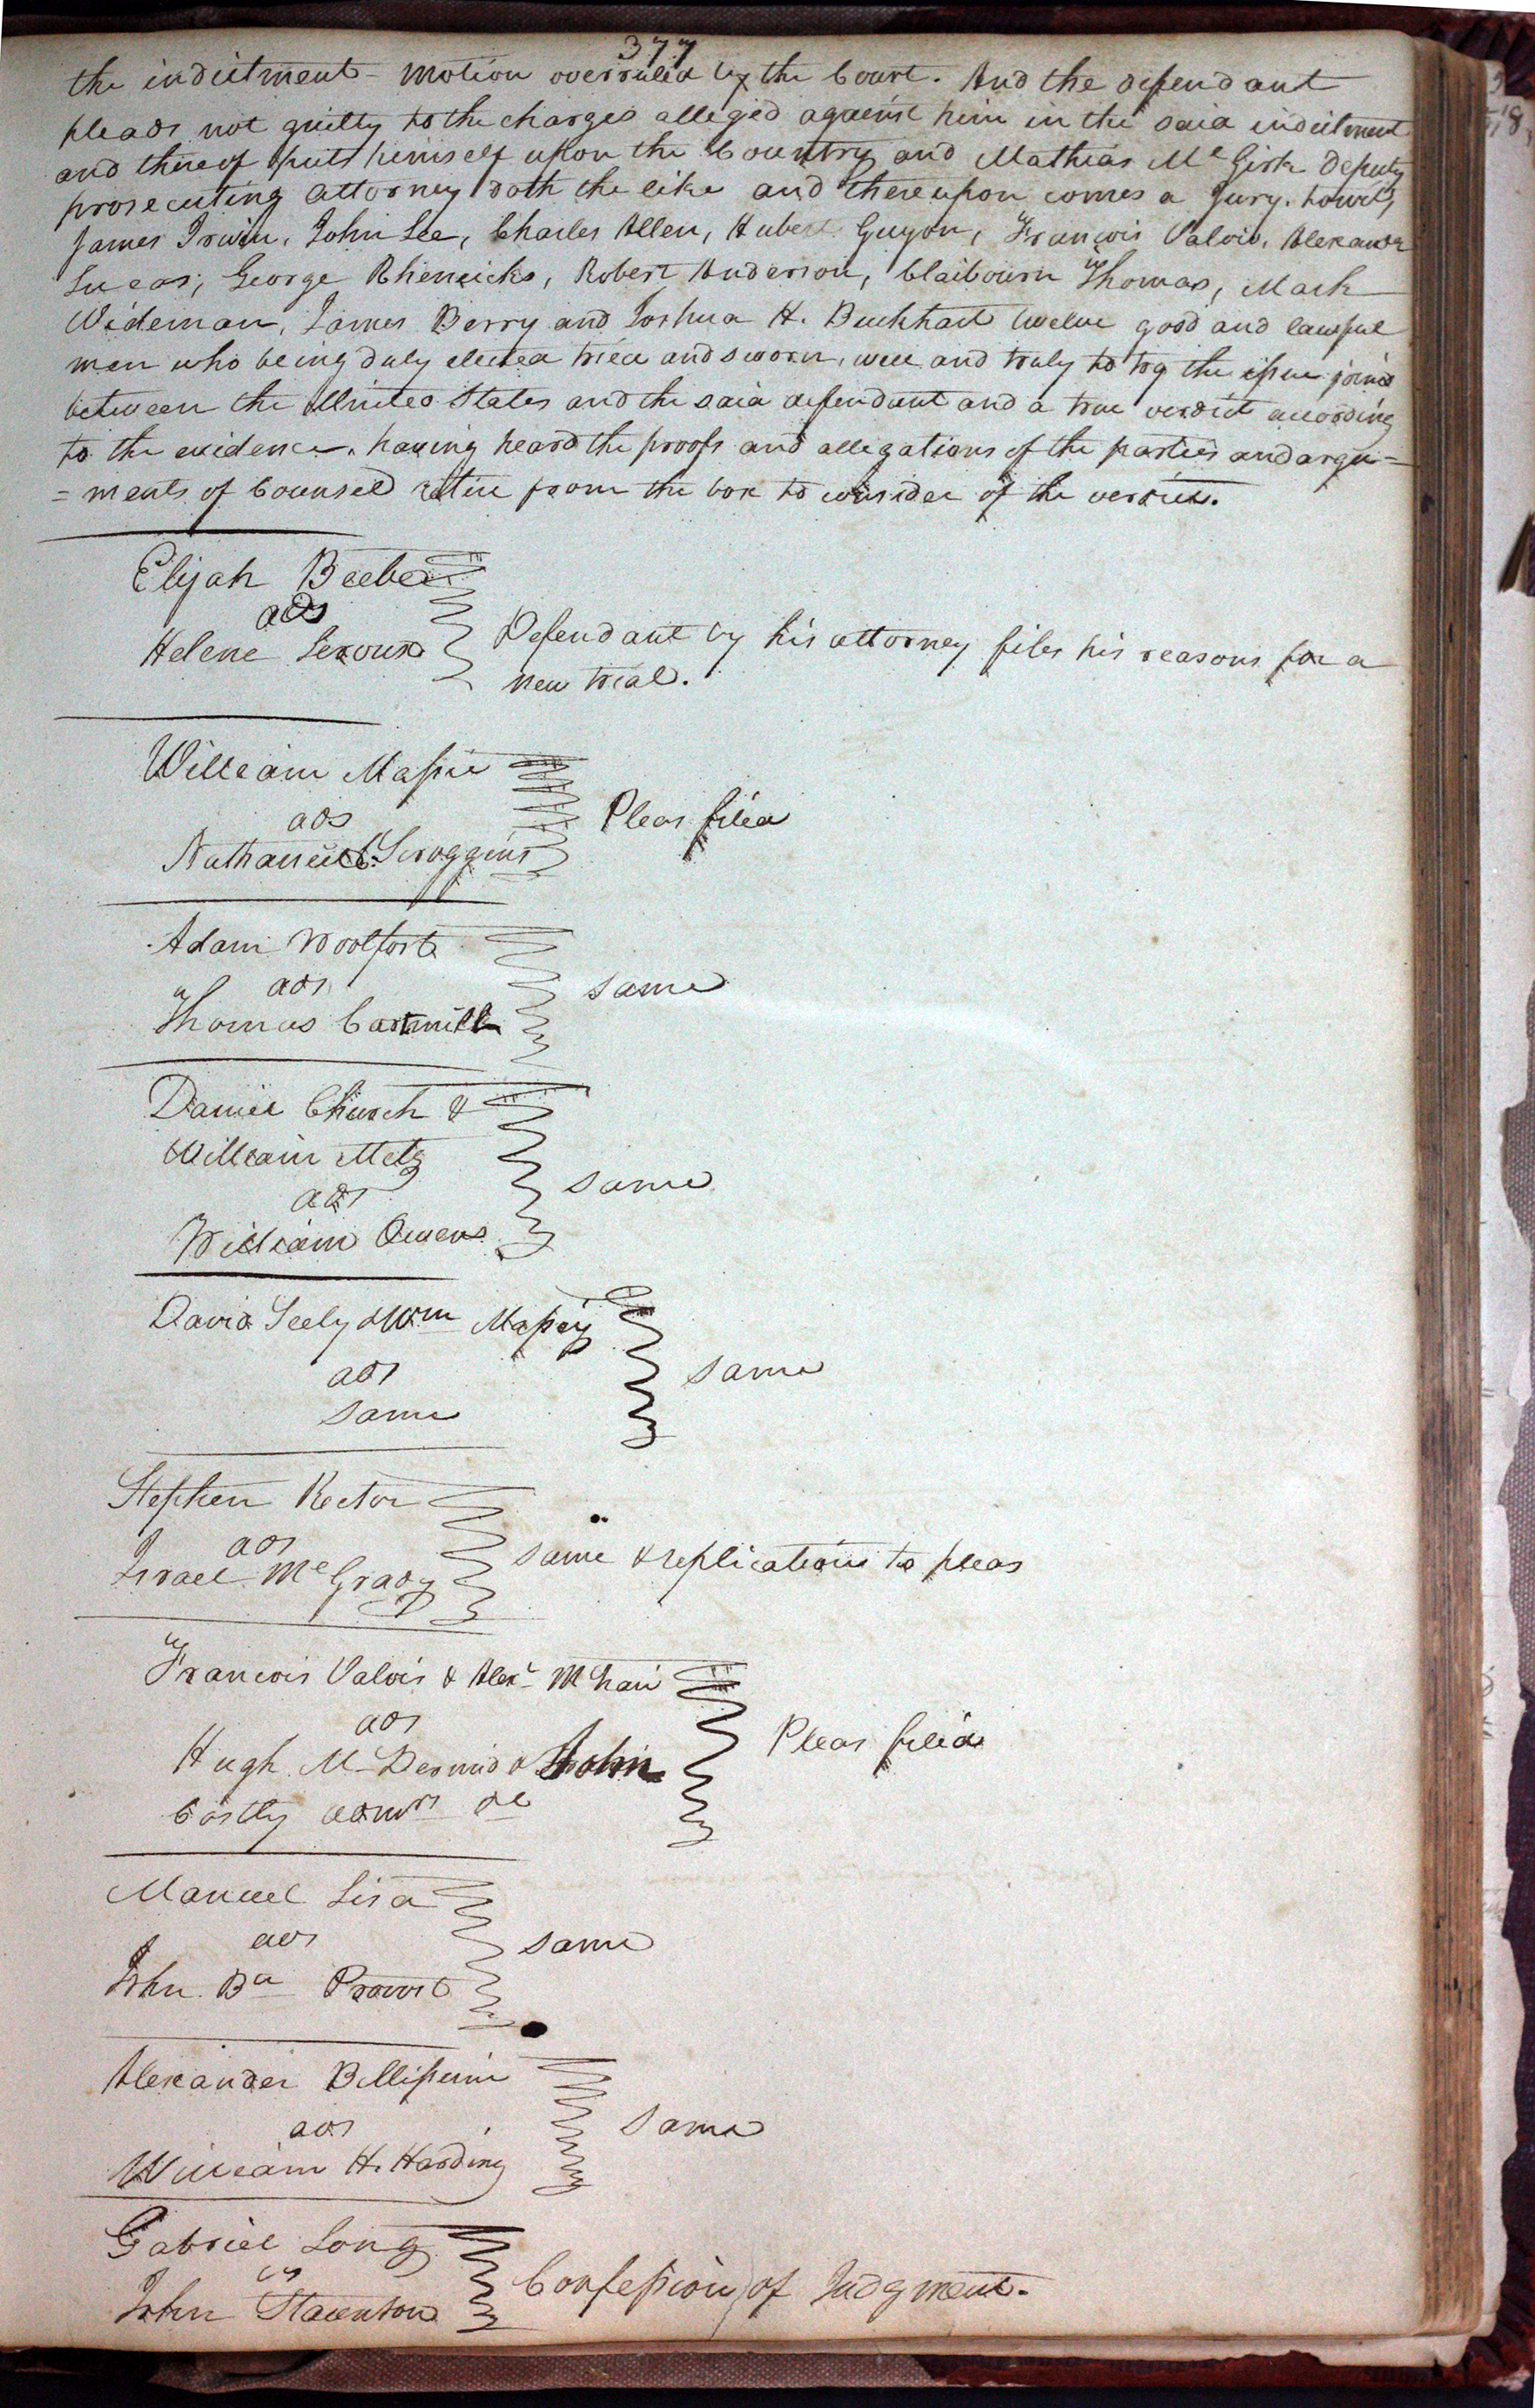 377
the indictment - motion overruled by the Court. And the defendant
pleads not guilty to the charges alleged against him in the said indictment
and thereof puts himself upon the Country and Mathias Mc Girk deputy
prosecuting attorney doth the like and thereupon comes a Jury. towit,
James Irwin, John Lee, Charles Allen, Hubert Guyon, François Valois, Alexander
Lucas, George Rhensicks, Robert Anderson, Claibourn Thomas, Mark
Wideman, James Berry and Joshua H. Burkhart twelve good and lawful
men who being duly elected tried and sworn, well and truly to try the issue joined
between the United States and the said defendant and a true verdict according
to the evidence. having heard the proofs and allegations of the parties and argu=
=ments of Counsel retire from the box to consider of the verdict.
Elijah Beebe
ads
Helene Leroux
Defendant by his attorney files his reasons for a
new trial.
William Massie
ads
Nathaniel C. Scroggins
Pleas filed
Adam Woolfort
ads
Thomas Cartmill
same
Daniel Church &
William Metz
ads
William Owens
same
David Seely & Wm Massey
ads
same
same
Stephen Rector
ads
Israel Mc Grady
same & replications to pleas
Francois Valois & Alexr McNair
ads
Hugh Mc Dermid & John
Costly admrs &c
Pleas filed
Manuel Lisa
ads
John Ba Provost
same
Alexander Bellissime
ads
William H. Harding
same
Gabriel Long
vs
John Staunton
Confession of Judgment.